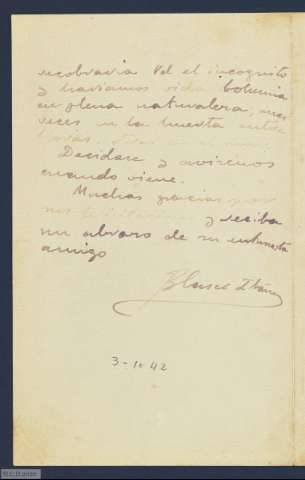 recobraria Vd el incognito
y hariamos vida bohemia
en plena naturaleza, unas
veces en la huerta entre
flores, otras en el mar.
Decidase y avisenos
cuando viene.
Muchas gracias por
sus felicitaciones y reciba
un abrazo de su entusiasta
amigo
Blasco Ibáñez
3-10-42